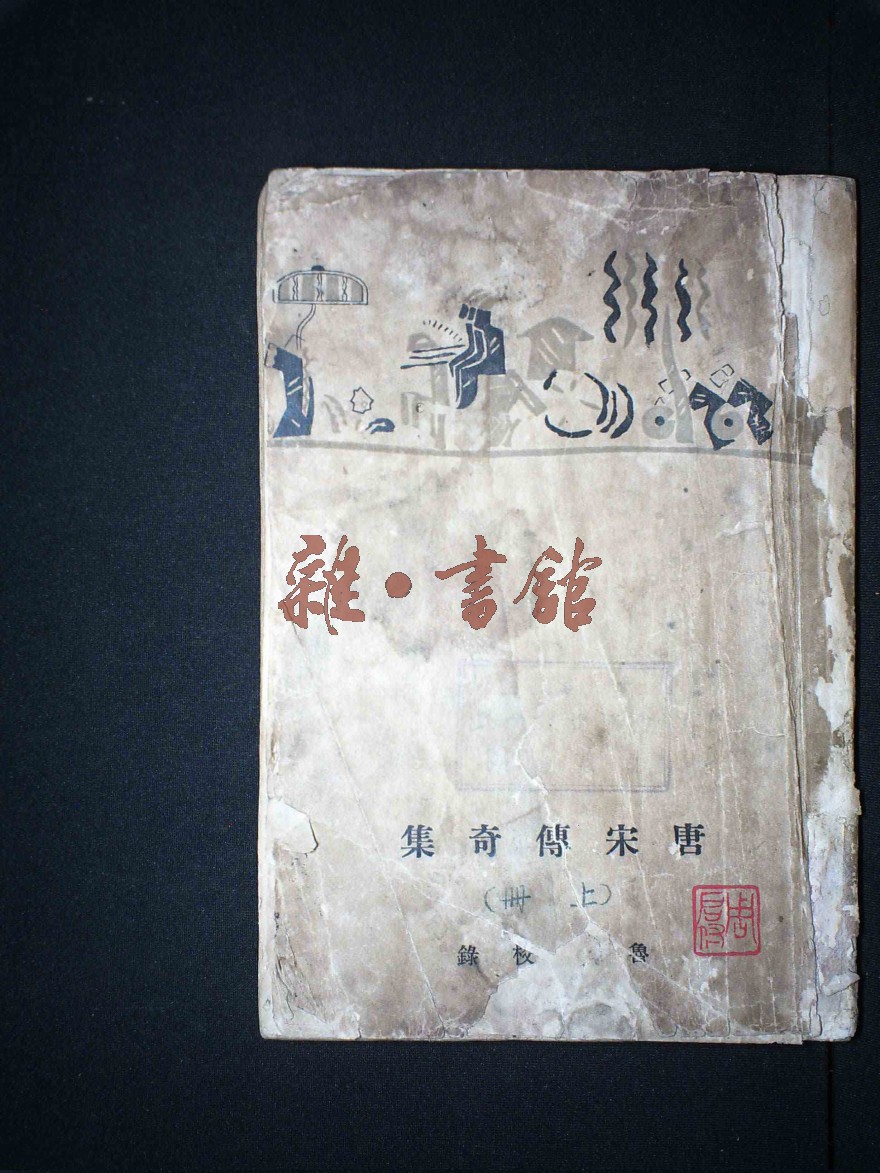 雜·書館
唐宋傳奇集
(上冊)
魯 校錄